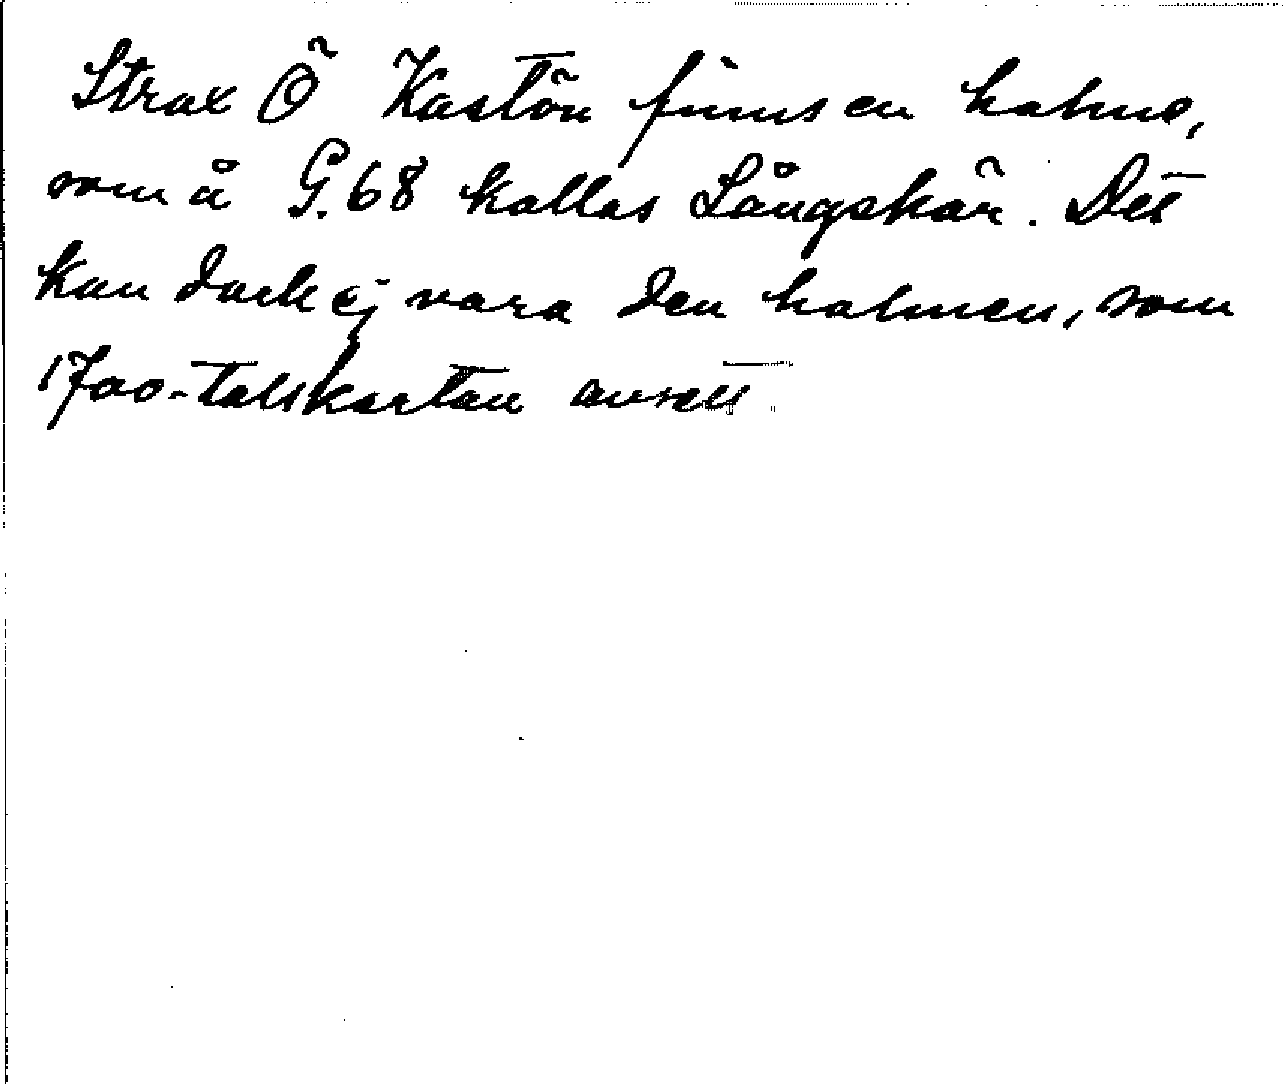 Strax Ö Kastön finns en holme,
som å G.68 kallas Långskär. Det
kan dock ej vara den holmen, som
1700-talskartan avsett.